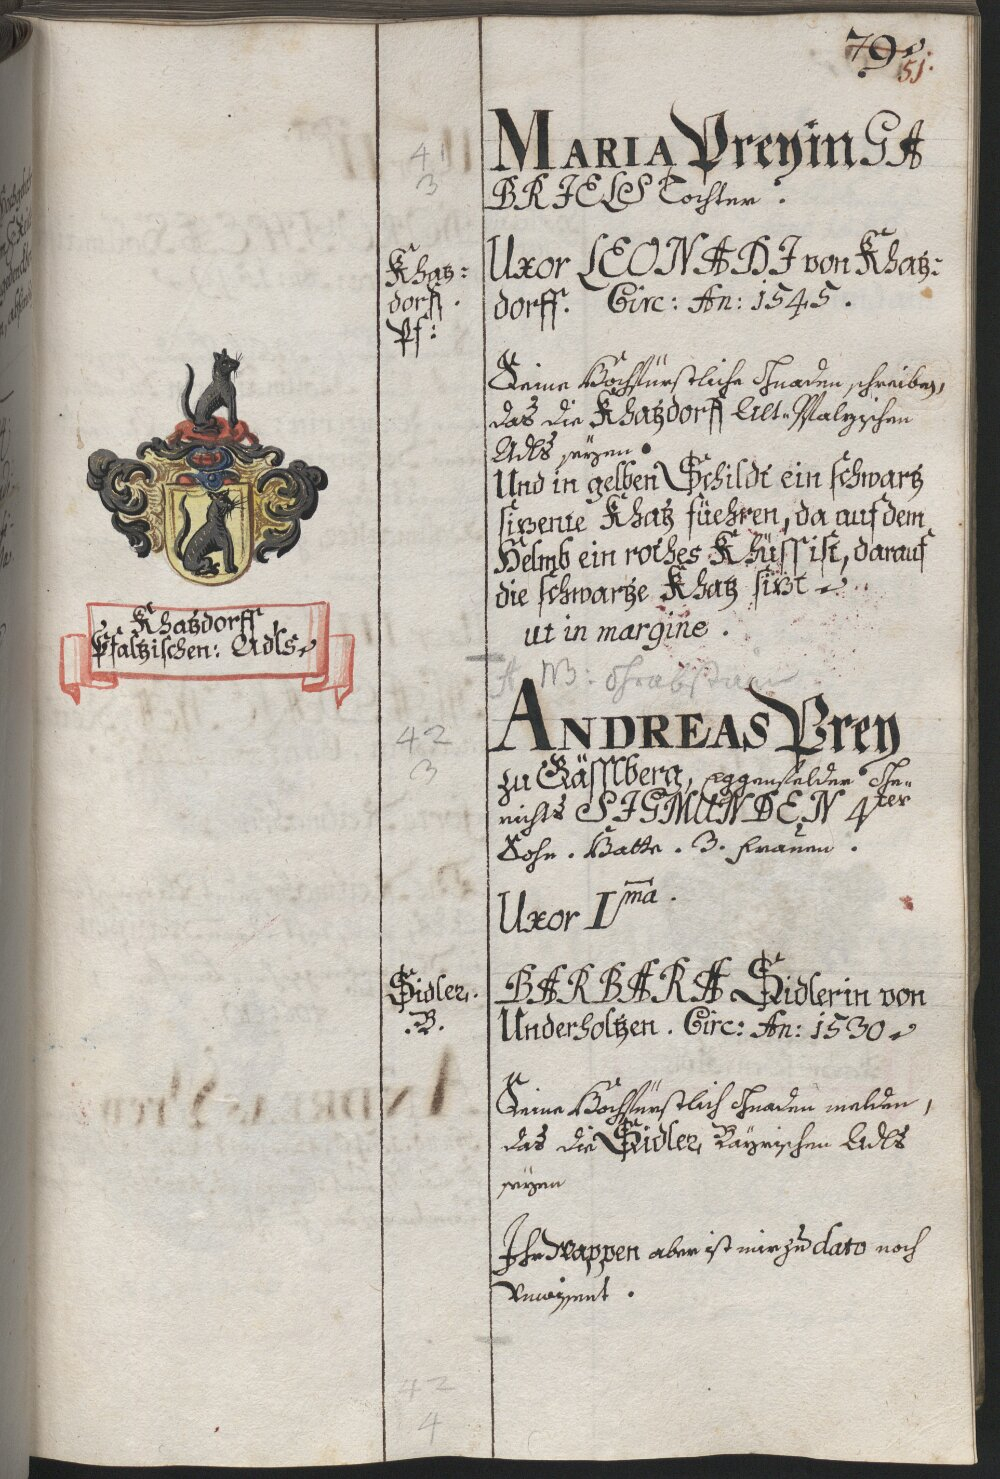 79.
51.
41
3
MARIA Preyin GA
BRIELS Tochter.
Khatz:
dorff.
Pf:
Uxor LEONARDI von Khatz:
dorff. Circ: An: 1545.
Seine Hochfürstliche Gnaden schreiben,
das die Khatzdorff Alt-Pfalzischen
Adls seyen.
Und in gelben Schildt ein schwartz
sizente Khatz füehren, da auf dem
Helmb ein rothes Khüss ist, darauf
die schwartze Khatz sizt
ut in margine.
Khatzdorff
Pfaltzischen: Adls
NB: Grabstain
42
3
ANDREAS Prey
zu Gässlberg, Eggenfelder Ge-
richts SIGMUNDEN 4ter
Sohn. Hatte. 3. Frauen.
Uxor Ima.
Sidler.
.B.
BARBARA Sidlerin von
Underholtzen. Circ: An: 1530
Seine Hochfürstlich Gnaden melden,
das die Sidler Bayrischen Adls
seyen
Ihr Wappen aber ist mir zu dato noch
Unwissent.
42
4